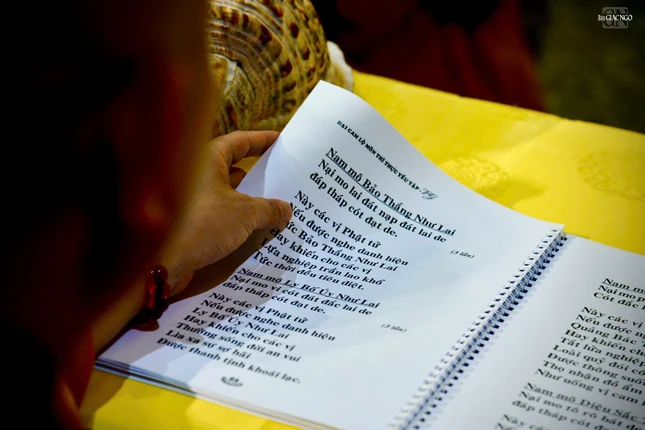 Báo GIÁC NGỘ
ĐẠI CAM LỘ MÔN TRÌ THỰC YẾU TẬP
Nam mô Bảo Thắng Như Lai
Nại mo lai đát nạp đát lai de
đáp tháp cót đạt de.
(3 lần)
Này các vị Phật tử
Nếu được nghe danh hiệu
Đức Bảo Thắng Như Lai
Hay khiến cho các vị
Lửa nghiệp trần lao khổ
Tức thời đều tiêu diệt.
Nam mô Ly Bố Úy Như Lai
Nại mo vi cót đát đắc lai de
đáp tháp cót đạt de.
(3 lần)
Này các vị Phật tử
Nếu được nghe danh hiệu
Ly Bố Úy Như Lai
Hay khiến cho các vị
Thường sống đời an vui
Lìa xa sự sợ hãi
Được thanh tịnh khoái lạc.
Nam mô
Nại mo
Cót đắc
Này các vị
Nếu được nghe
Quảng Bác
Tất lửa nghiệp
Loài quỷ đói
Được thông suốt
Thọ nhận đồ ăn
Như uống vị cam
Nam mô Diệu Sắc
Nại mo tô rô hát
đáp tháp cót đạt
Này các